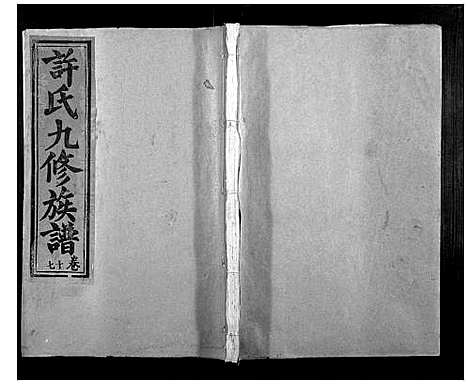 許氏九修族譜
卷十七